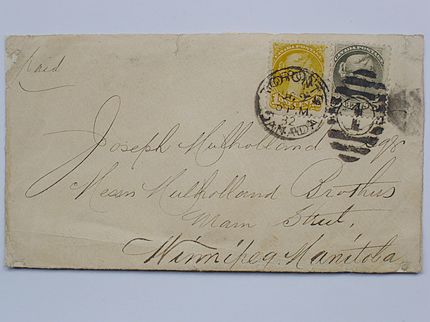 CANADA POSTAGE
Paid
TORONTO
PM
82
CANADA
Joseph Mulholland
Messrs Mulholland Brothers
Main Street,
Winnipeg Manitoba